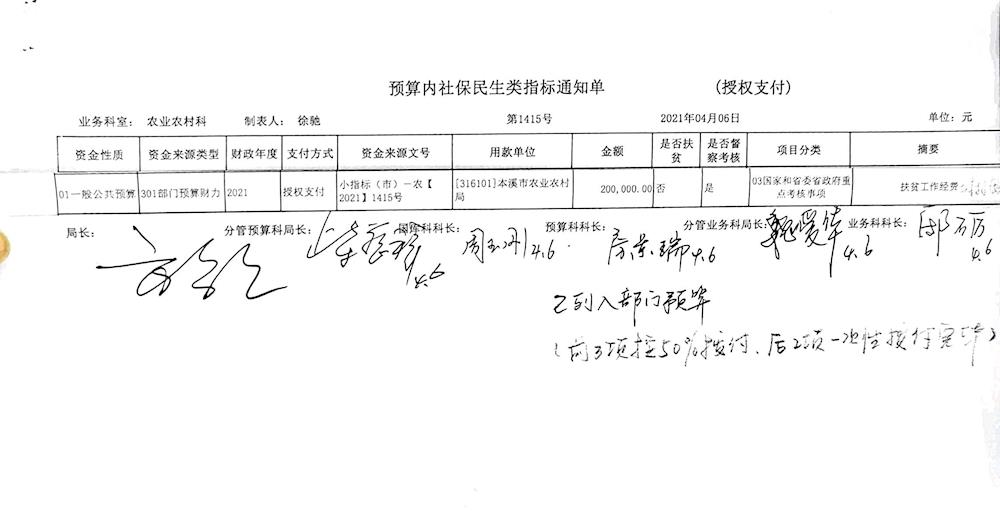 预算内社保民生类指标通知单 (授权支付)
业务科室： 农业农村科 制表人： 徐驰 第1415号 2021年04月06日 单位：元
资金性质 资金来源类型 财政年度 支付方式 资金来源文号 用款单位 金额 是否扶贫 是否督察考核 项目分类 摘要
01一般公共预算 301部门预算财力 2021 授权支付 小指标（市）－农【2021】1415号 [316101]本溪市农业农村局 200,000.00 否 是 03国家和省委省政府重点考核事项 扶贫工作经费
局长： 分管预算科局长： 国库科科长： 预算科科长： 分管业务科局长： 业务科科长：
4.6 4.6 4.6 4.6 4.6
已列入部门预算
(前3项按50%拨付、后2项一次性拨付完毕)